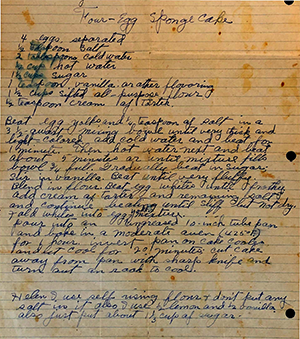 Four-Egg Sponge Cake
4 eggs, separated
½ teaspoon salt
2 tablespoons cold water
½ cup hot water
1½ cups sugar
1 teaspoon vanilla or other flavoring
1½ cups sifted all-purpose flour
½ teaspoon cream of tarter
Beat egg yolks and ¼ teaspoon of salt in a
3½ quart mixing bowl until very thick and
light colored add cold water and beat for
1 minute. Then hot water next and beat
about 5 minutes or until mixture fills
bowl ¾ full Gradually beat in sugar.
Stir in vanilla. Beat until very fluffy.
Blend in flour Beat egg whites until frothy
add cream of tarter and remaining salt
and continue beating until stiff but not dry.
Fold whites into egg mixture.
Pour into an ungreased 10-inch tube pan
and bake in a moderate oven (325°F)
for 1 hour invert pan on cake cooler
and let cool for 20 minutes cut cake
away from pan with sharp knife and
turn out on rack to cool.
Helen I use self rising flour & don't put any
salt in it also I use ½ lemon and ½ vanilla
also just put about 1½ cup of sugar.